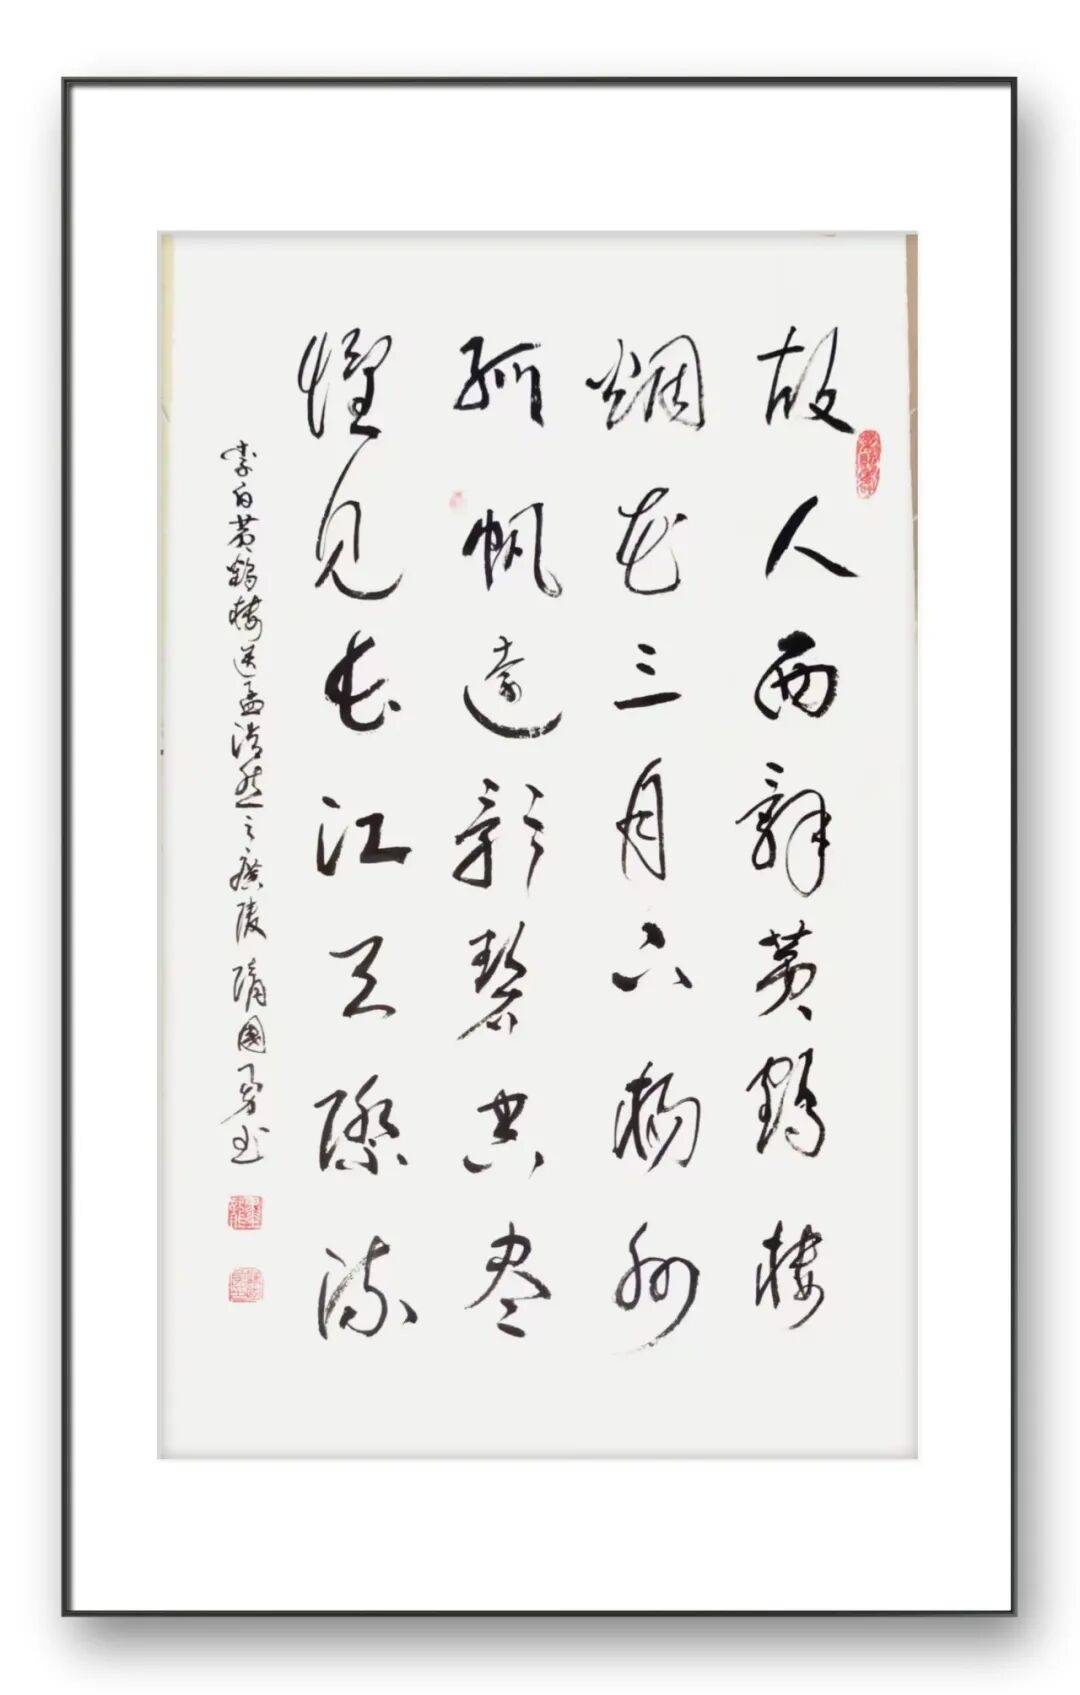 故人西辞黄鹤楼
烟花三月下扬州
孤帆远影碧空尽
惟见长江天际流
李白黄鹤楼送孟浩然之广陵 隋國勇书